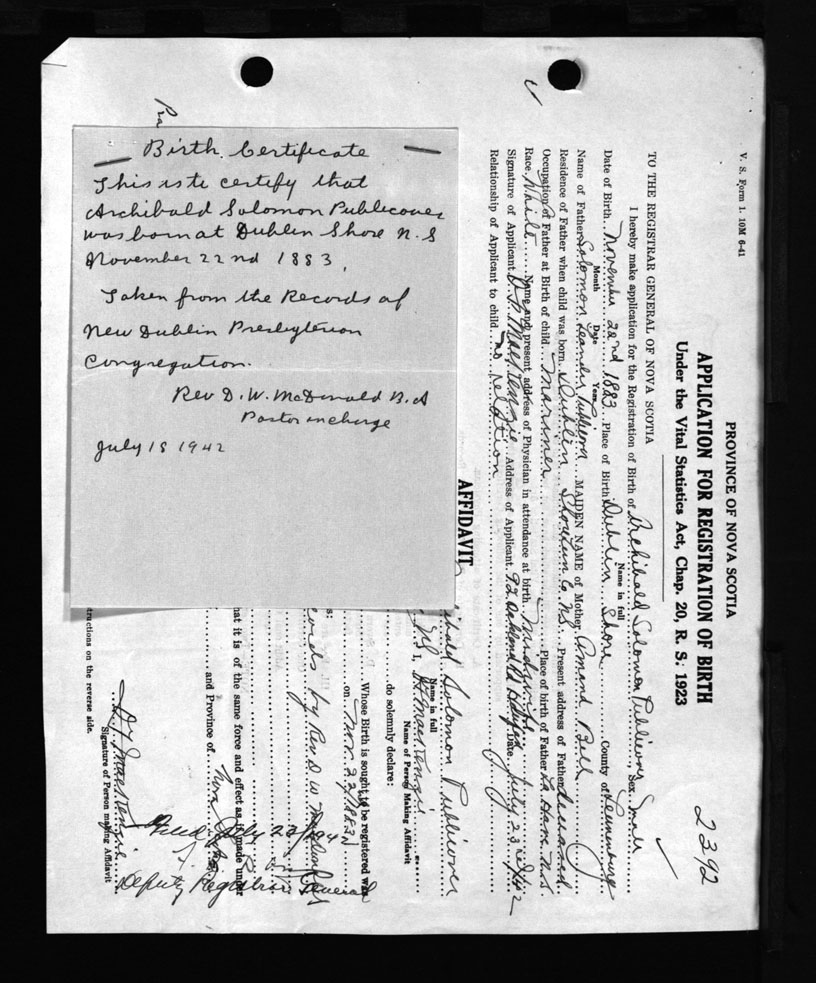 Birth Certificate
This is to certify that
Archibald Solomon Publicover
was born at Dublin Shore N.S
November 22nd 1883,
Taken from the Records of
New Dublin Presbyterian
Congregation.
Rev D. W. McDonald B.A
Pastor in charge
July 18 1942
V. S. Form 1. 10M 6-41
2392
PROVINCE OF NOVA SCOTIA
APPLICATION FOR REGISTRATION OF BIRTH
Under the Vital Statistics Act, Chap. 20, R. S. 1923
TO THE REGISTRAR GENERAL OF NOVA SCOTIA
I hereby make application for the Registration of Birth of Archibald Solomon Publicover, Sex male
Name in full
Date of Birth November 22nd 1883 Place of Birth Dublin Shore County of Lunenburg
Month Date Year
Name of Father Solomon Leander Publicover MAIDEN NAME of Mother Amand Bell
Residence of Father when child was born Dublin Shore Lun Co NS Present address of Father deceased
Occupation of Father at Birth of child Mariner Place of birth of Father La Have N.S.
Race White Name and present address of Physician in attendance at birth Midwife
Signature of Applicant Address of Applicant Date July 23rd 1942
Relationship of Applicant to child no relation
AFFIDAVIT
I,
Name of Person Making Affidavit
do solemnly declare:
ibald Solomon Publicover
Name in full
Whose Birth is sought to be registered was
on Nov. 22/1883
s:
cords by Rev D W McDonald
hat it is of the same force and effect as if made under
and Province of Nova Scotia
Filed July 23/1942
Deputy Registrar General
Signature of Person making Affidavit
tructions on the reverse side.